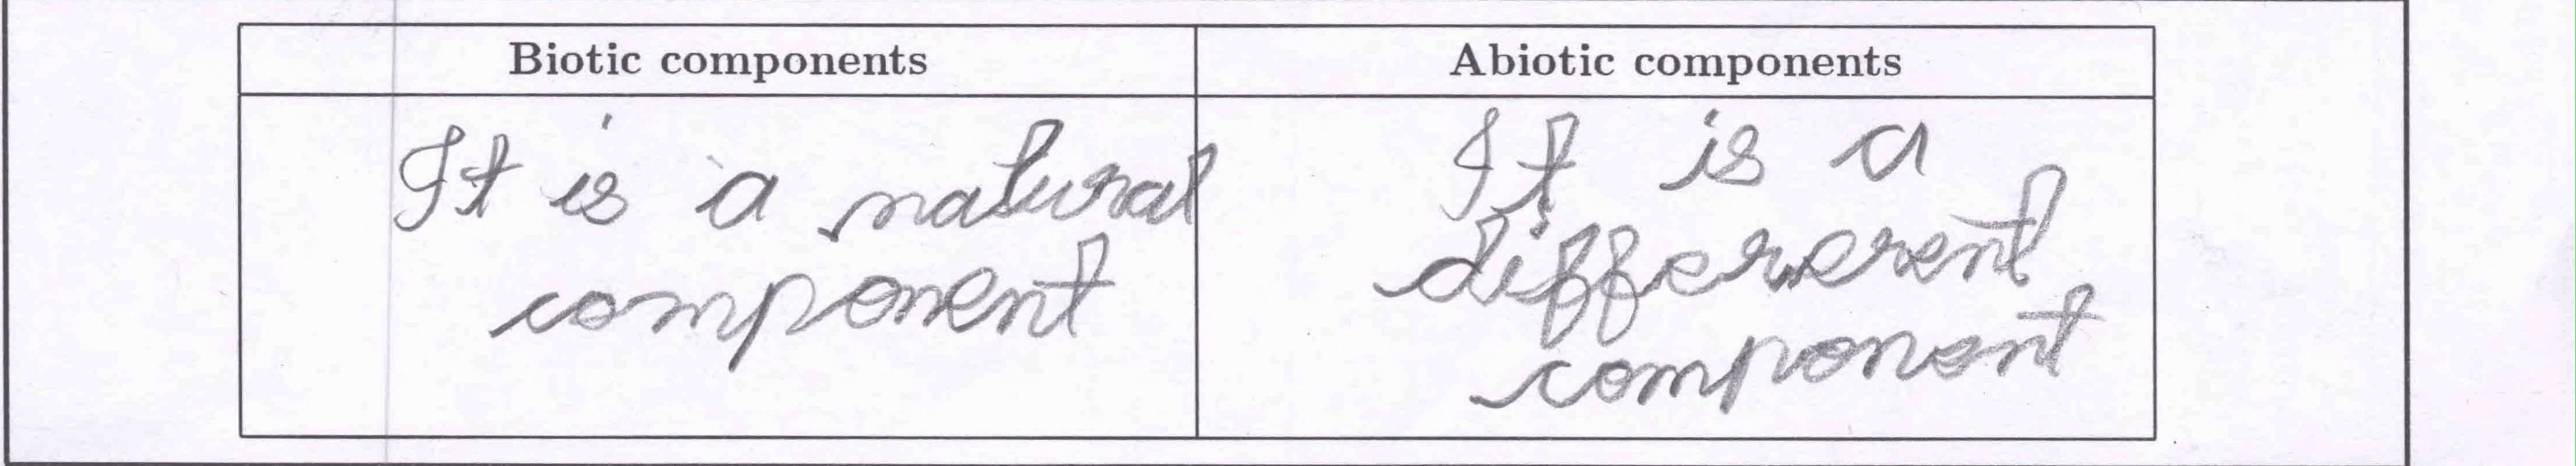 Biotic components Abiotic components
It is a natural
component
It is a
differerent
component